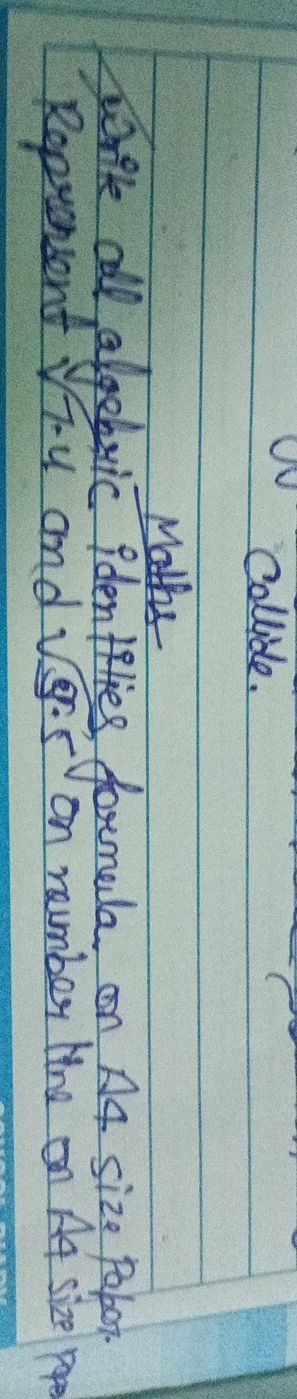 Collide.
Maths
Write all algebric identities formula on A4 size Paper.
Represent √7.4 and on number line on A4 size